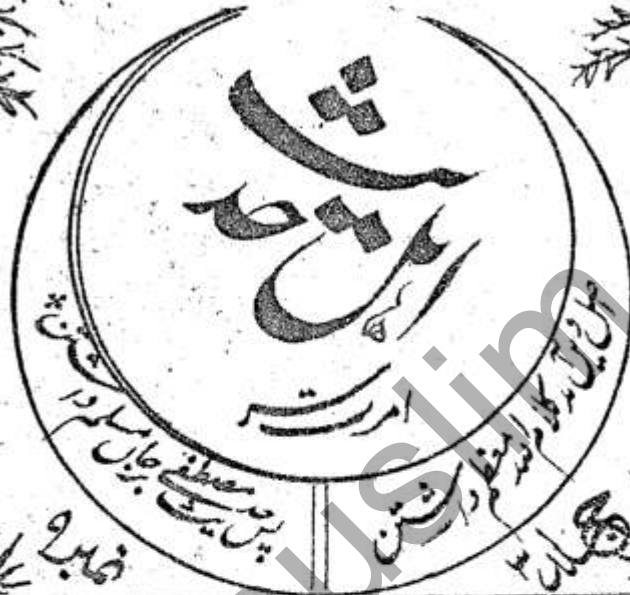 اہل حدیث
امرتسر
اصل دین آمد کلام اللہ معظم داشتن
پس حدیث مصطفےٰ بر جاں مسلم داشتن
نمبر ۹
uslim